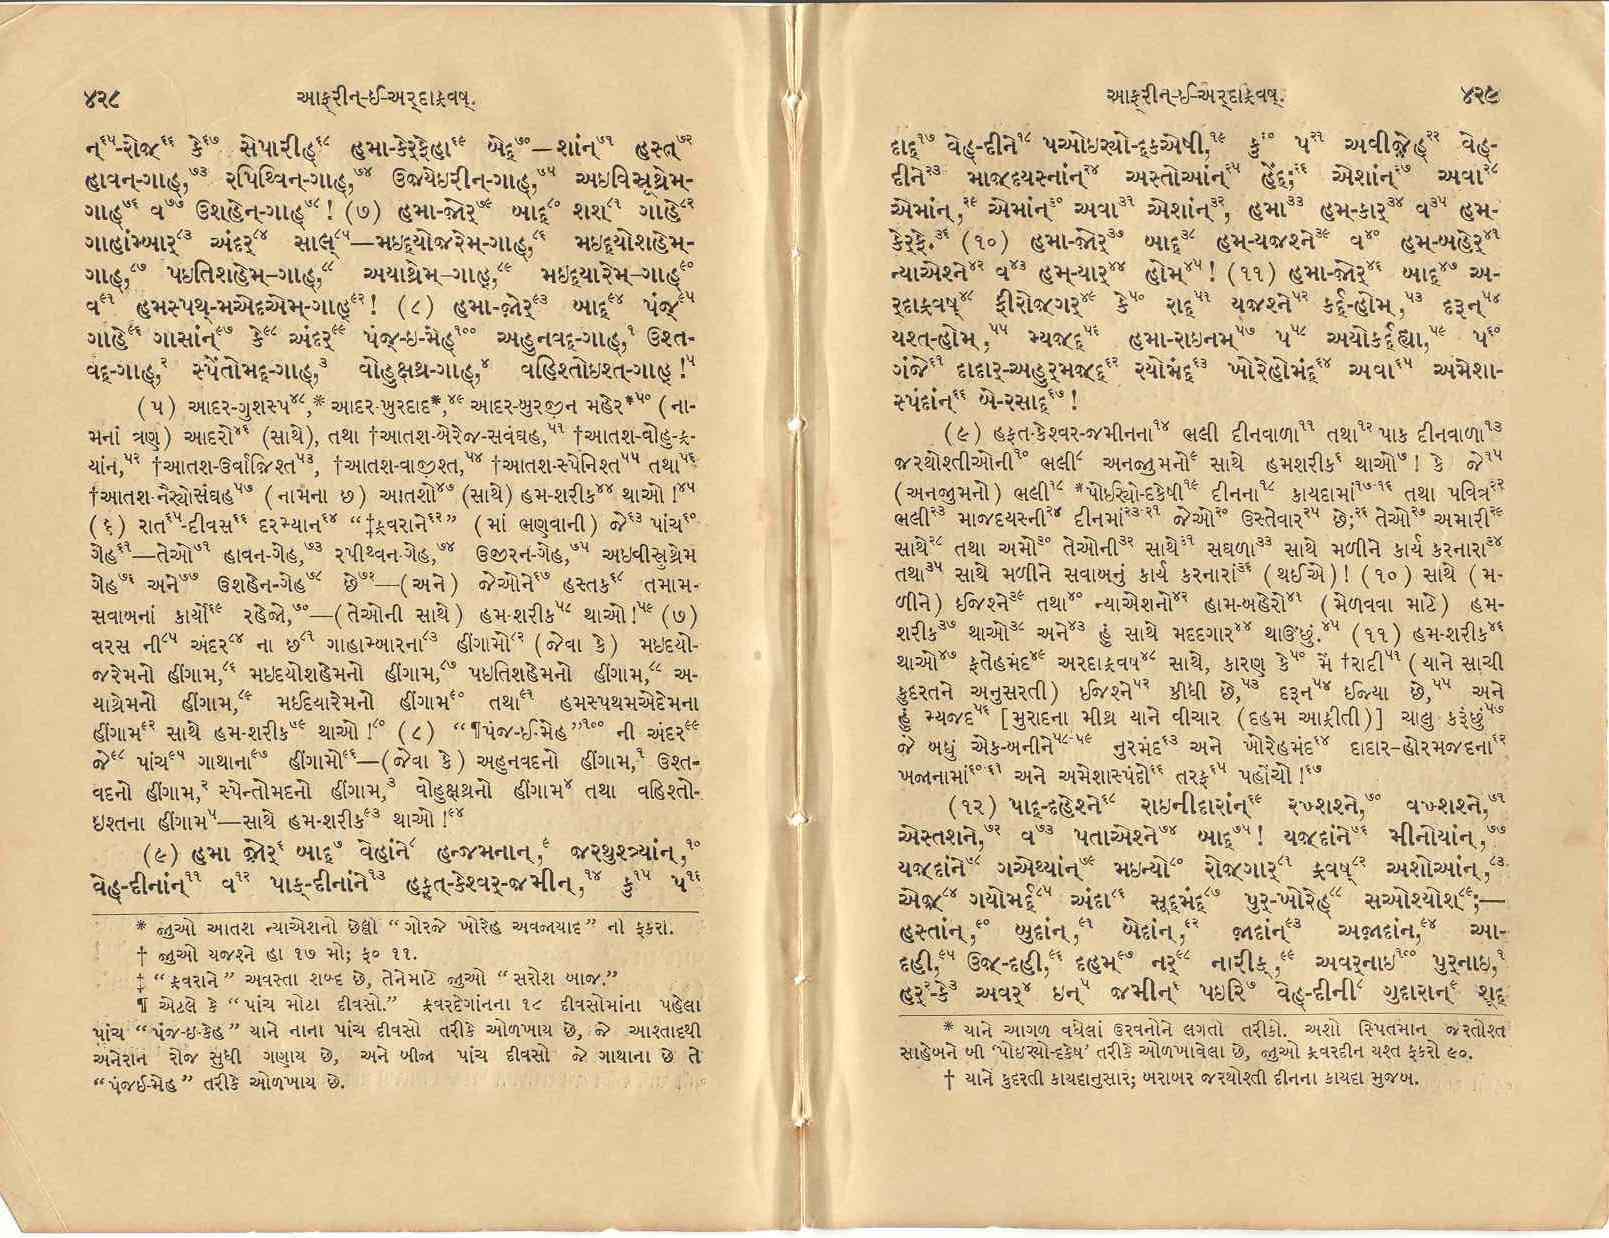 ૪૨૮
આફ્રીન્-ઈ-અર્દાફ્રવષ્.
ન્૬૫-રોજ૬૬ કે૬૭ સેપારીહ્૬૮ હમા-કેર્ફેહા૬૯ બેદ્૭૦—શાંન્૭૧ હસ્ત્૭૨
હાવન-ગાહ્,૭૩ રપિથ્વિન-ગાહ્,૭૪ ઉજયેઇરીન-ગાહ્,૭૫ અઇવિસ્રૂથ્રેમ-
ગાહ્૭૬ વ૭૭ ઉશહેન-ગાહ્૭૮! (૭) હમા-જોર્૭૯ બાદ્૮૦ શશ્૮૧ ગાહે૮૨
ગાહાંમ્બાર્૮૩ અંદર્૮૪ સાલ્૮૫—મઇદ્યોજરેમ-ગાહ્,૮૬ મઇદ્યોશહેમ-
ગાહ્,૮૭ પઇતિશહેમ્-ગાહ્,૮૮ અયાથ્રેમ-ગાહ્,૮૯ મઇદ્યારેમ-ગાહ્૯૦
વ૯૧ હમસ્પથ્-મએદએમ્-ગાહ્૯૨! (૮) હમા-જોર્૯૩ બાદ્૯૪ પંજ્૯૫
ગાહે૯૬ ગાસાંન્૯૭ કે૯૮ અંદર્૯૯ પંજ્-ઇ-મેહ્૧૦૦ અહુનવદ્-ગાહ્,૧ ઉશ્ત-
વદ્-ગાહ્,૨ સ્પેંતોમદ્-ગાહ્,૩ વોહુક્ષથ્ર-ગાહ્,૪ વહિશ્તોઇશ્ત્-ગાહ્!૫
(૫) આદર-ગુશસ્પ૪૮,* આદર-ખુરદાદ*,૪૯ આદર-બુરજીન મહેર*૫૦ (ના-
મનાં ત્રણ) આદરો૪૬ (સાથે), તથા †આતશ-બેરેજ-સવંઘહ,૫૧ †આતશ-વોહુ-ફ્ર-
યાંન,૫૨ †આતશ-ઉર્વાજિશ્ત૫૩, †આતશ-વાજીશ્ત,૫૪ †આતશ-સ્પેનિશ્ત૫૫ તથા૫૬
†આતશ-નૈર્યોસંઘહ૫૭ (નામના છ) આતશો૪૭ (સાથે) હમ-શરીક૪૪ થાઓ!૪૫
(૬) રાત૬૫-દીવસ૬૬ દરમ્યાન૬૪ “‡ફ્રવરાને૬૨” (માં ભણવાની) જે૬૩ પાંચ૬૦
ગેહ૬૧—તેઓ૭૧ હાવન-ગેહ,૭૩ રપીથ્વન-ગેહ,૭૪ ઉજીરન-ગેહ,૭૫ અઇવીસ્રુથ્રેમ
ગેહ૭૬ અને૭૭ ઉશહેન-ગેહ૭૮ છે૭૨—(અને) જેઓને૬૭ હસ્તક૬૮ તમામ-
સવાબનાં કાર્યો૬૯ રહેજો,૭૦—(તેઓની સાથે) હમ-શરીક૫૮ થાઓ!૫૯ (૭)
વરસ ની૮૫ અંદર૮૪ ના છ૮૧ ગાહામ્બારના૮૩ હીંગામો૮૨ (જેવા કે) મઇદયો-
જરેમનો હીંગામ,૮૬ મઇદયોશહેમનો હીંગામ,૮૭ પઇતિશહેમનો હીંગામ,૮૮ અ-
યાથ્રેમનો હીંગામ,૮૯ મઇદિયારેમનો હીંગામ૯૦ તથા૯૧ હમસ્પથમએદેમના
હીંગામ૯૨ સાથે હમ-શરીક૭૯ થાઓ!૮૦ (૮) “¶પંજ-ઈ-મેહ”૧૦૦ ની અંદર૯૯
જે૯૮ પાંચ૯૫ ગાથાના૯૭ હીંગામો૯૬—(જેવા કે) અહુનવદનો હીંગામ,૧ ઉશ્ત-
વદનો હીંગામ,૨ સ્પેન્તોમદનો હીંગામ,૩ વોહુક્ષથ્રનો હીંગામ૪ તથા વહિશ્તો-
ઇશ્તના હીંગામ૫—સાથે હમ-શરીક૯૩ થાઓ!૯૪
(૯) હમા જોર્૬ બાદ્૭ વેહાંને૮ હન્જમનાન્,૯ જરથુશ્ત્ર્યાંન્,૧૦
વેહ્-દીનાંન્૧૧ વ૧૨ પાક્-દીનાંને૧૩ હફ્ત્-કેશ્વર્-જમીન્,૧૪ કુ૧૫ પ૧૬
* જુઓ આતશ ન્યાએશનો છેલ્લો “ગોરજે ખોરેહ અવજાયાદ” નો ફકરો.
† જુઓ યજશ્ને હા ૧૭ મો; ફ૦ ૧૧.
‡ “ફ્રવરાને” અવસ્તા શબ્દ છે, તેનેમાટે જુઓ “સરોશ બાજ.”
¶ એટલે કે “પાંચ મોટા દીવસો.” ફ્રવરદેગાંનના ૧૮ દીવસોમાંના પહેલા
પાંચ “પંજ-ઇ-કેહ” યાને નાના પાંચ દીવસો તરીકે ઓળખાય છે, જે આશ્તાદથી
અનેરાન રોજ સુધી ગણાય છે, અને બીજા પાંચ દીવસો જે ગાથાના છે તે
“પંજઈ-મેહ” તરીકે ઓળખાય છે.
આફ્રીન્-ઈ-અર્દાફ્રવષ્.
૪૨૯
દાદ્૧૭ વેહ્-દીને૧૮ પઓઇર્યો-દ્કએષી,૧૯ કુ૨૦ પ૨૧ અવીજેહ્૨૨ વેહ્-
દીને૨૩ માજદયસ્નાંન્૨૪ અસ્તોઆંન્૨૫ હેંદ્;૨૬ એશાંન્૨૭ અવા૨૮
એમાંન્,૨૯ એમાંન્૩૦ અવા૩૧ એશાંન્૩૨, હમા૩૩ હમ-કાર્૩૪ વ૩૫ હમ-
કેર્ફે.૩૬ (૧૦) હમા-જોર્૩૭ બાદ્૩૮ હમ-યજશ્ને૩૯ વ૪૦ હમ-બહેર્૪૧
ન્યાએશ્ને૪૨ વ૪૩ હમ્-યાર્૪૪ હોમ્૪૫! (૧૧) હમા-જોર્૪૬ બાદ્૪૭ અ-
ર્દાફ્રવષ્૪૮ ફીરોજગર્૪૯ કે૫૦ રાદ્૫૧ યજશ્ને૫૨ કર્દ્દ-હોમ્,૫૩ દરૂન્૫૪
યશ્ત-હોમ્,૫૫ મ્યજદ્૫૬ હમા-રાઇનમ્૫૭ પ૫૮ અયોકર્દ્દહ્યા,૫૯ પ૬૦
ગંજે૬૧ દાદાર્-અહુર્મજદ્૬૨ રયોમંદ્૬૩ ખોરેહોમંદ્૬૪ અવા૬૫ અમેશા-
સ્પંદાંન્૬૬ બે-રસાદ્૬૭!
(૯) હફ્ત-કેશ્વર-જમીનના૧૪ ભલી દીનવાળા૧૧ તથા૧૨ પાક દીનવાળા૧૩
જરથોશ્તીઓની૧૦ ભલી૮ અનજુમનો૯ સાથે હમશરીક૬ થાઓ૭! કે જે૧૫
(અનજુમનો) ભલી૧૮ *પોઇર્યો-દકેષી૧૯ દીનના૧૮ કાયદામાં૧૭-૧૬ તથા પવિત્ર૨૨
ભલી૨૩ માજદયસ્ની૨૪ દીનમાં૨૩-૨૧ જેઓ૨૦ ઉસ્તેવાર૨૫ છે;૨૬ તેઓ૨૭ અમારી૨૯
સાથે૨૮ તથા અમો૩૦ તેઓની૩૨ સાથે૩૧ સઘળા૩૩ સાથે મળીને કાર્ય કરનારા૩૪
તથા૩૫ સાથે મળીને સવાબનું કાર્ય કરનારાં૩૬ (થઈએ)! (૧૦) સાથે (મ-
ળીને) ઈજશ્ને૩૯ તથા૪૦ ન્યાએશનો૪૨ હામ-બહેરો૪૧ (મેળવવા માટે) હમ-
શરીક૩૭ થાઓ૩૮ અને૪૩ હું સાથે મદદગાર૪૪ થાઉંછું.૪૫ (૧૧) હમ-શરીક૪૬
થાઓ૪૭ ફતેહમંદ૪૯ અરદાફ્રવષ૪૮ સાથે, કારણ કે૫૦ મેં †રાદી૫૧ (યાને સાચી
કુદરતને અનુસરતી) ઈજશ્ને૫૨ કીધી છે,૫૩ દરૂન૫૪ ઈજ્યા છે,૫૫ અને
હું મ્યજદ૫૬ [મુરાદના મીશ્ર યાને વીચાર (દહમ આફ્રીતી)] ચાલુ કરૂંછું૫૭
જે બધું એક-બનીને૫૮-૫૯ નુરમંદ૬૩ અને ખોરેહમંદ૬૪ દાદાર-હોરમજદના૬૨
ખજાનામાં૬૦-૬૧ અને અમેશાસ્પંદો૬૬ તરફ૬૫ પહોંચો!૬૭
(૧૨) પાદ્-દહેશ્ને૬૮ રાઇનીદારાંન્૬૯ રખ્શશ્ને,૭૦ વખ્શશ્ને,૭૧
એસ્તશને,૭૨ વ૭૩ પતાએશ્ને૭૪ બાદ્૭૫! યજદાંને૭૬ મીનોયાંન્,૭૭
યજદાંને૭૮ ગએથ્યાંન્૭૯ મઇન્યો૮૦ રોજગાર્૮૧ ફ્રવષ્૮૨ અશોઆંન્,૮૩
એજ૮૪ ગયોમર્દ્દ૮૫ અંદા૮૬ સૂદ્મંદ્૮૭ પુર્-ખોરેહ્૮૮ સઓશ્યોશ્૮૯;—
હસ્તાંન્,૯૦ બુદાંન્,૯૧ બેદાંન્,૯૨ જાદાંન્૯૩ અજાદાંન્,૯૪ આ-
દહી,૯૫ ઉજ-દહી,૯૬ દહમ્૯૭ નર્૯૮ નારીક્,૯૯ અવર્નાઇ૧૦૦ પુર્નાઇ,૧
હર્૨-કે૩ અવર્૪ ઇન્૫ જમીન્૬ પઇરિ૭ વેહ્-દીની૮ ગુદારાન્૯ શૂદ્
* યાને આગળ વધેલાં ઉરવનોને લગતો તરીકો. અશો સ્પિતમાન જરતોશ્ત
સાહેબને બી ‘પોઇર્યો-દકેષ’ તરીકે ઓળખાવેલા છે, જુઓ ફ્રવરદીન યશ્ત ફકરો ૯૦.
† યાને કુદરતી કાયદાનુસાર; બરાબર જરથોશ્તી દીનના કાયદા મુજબ.